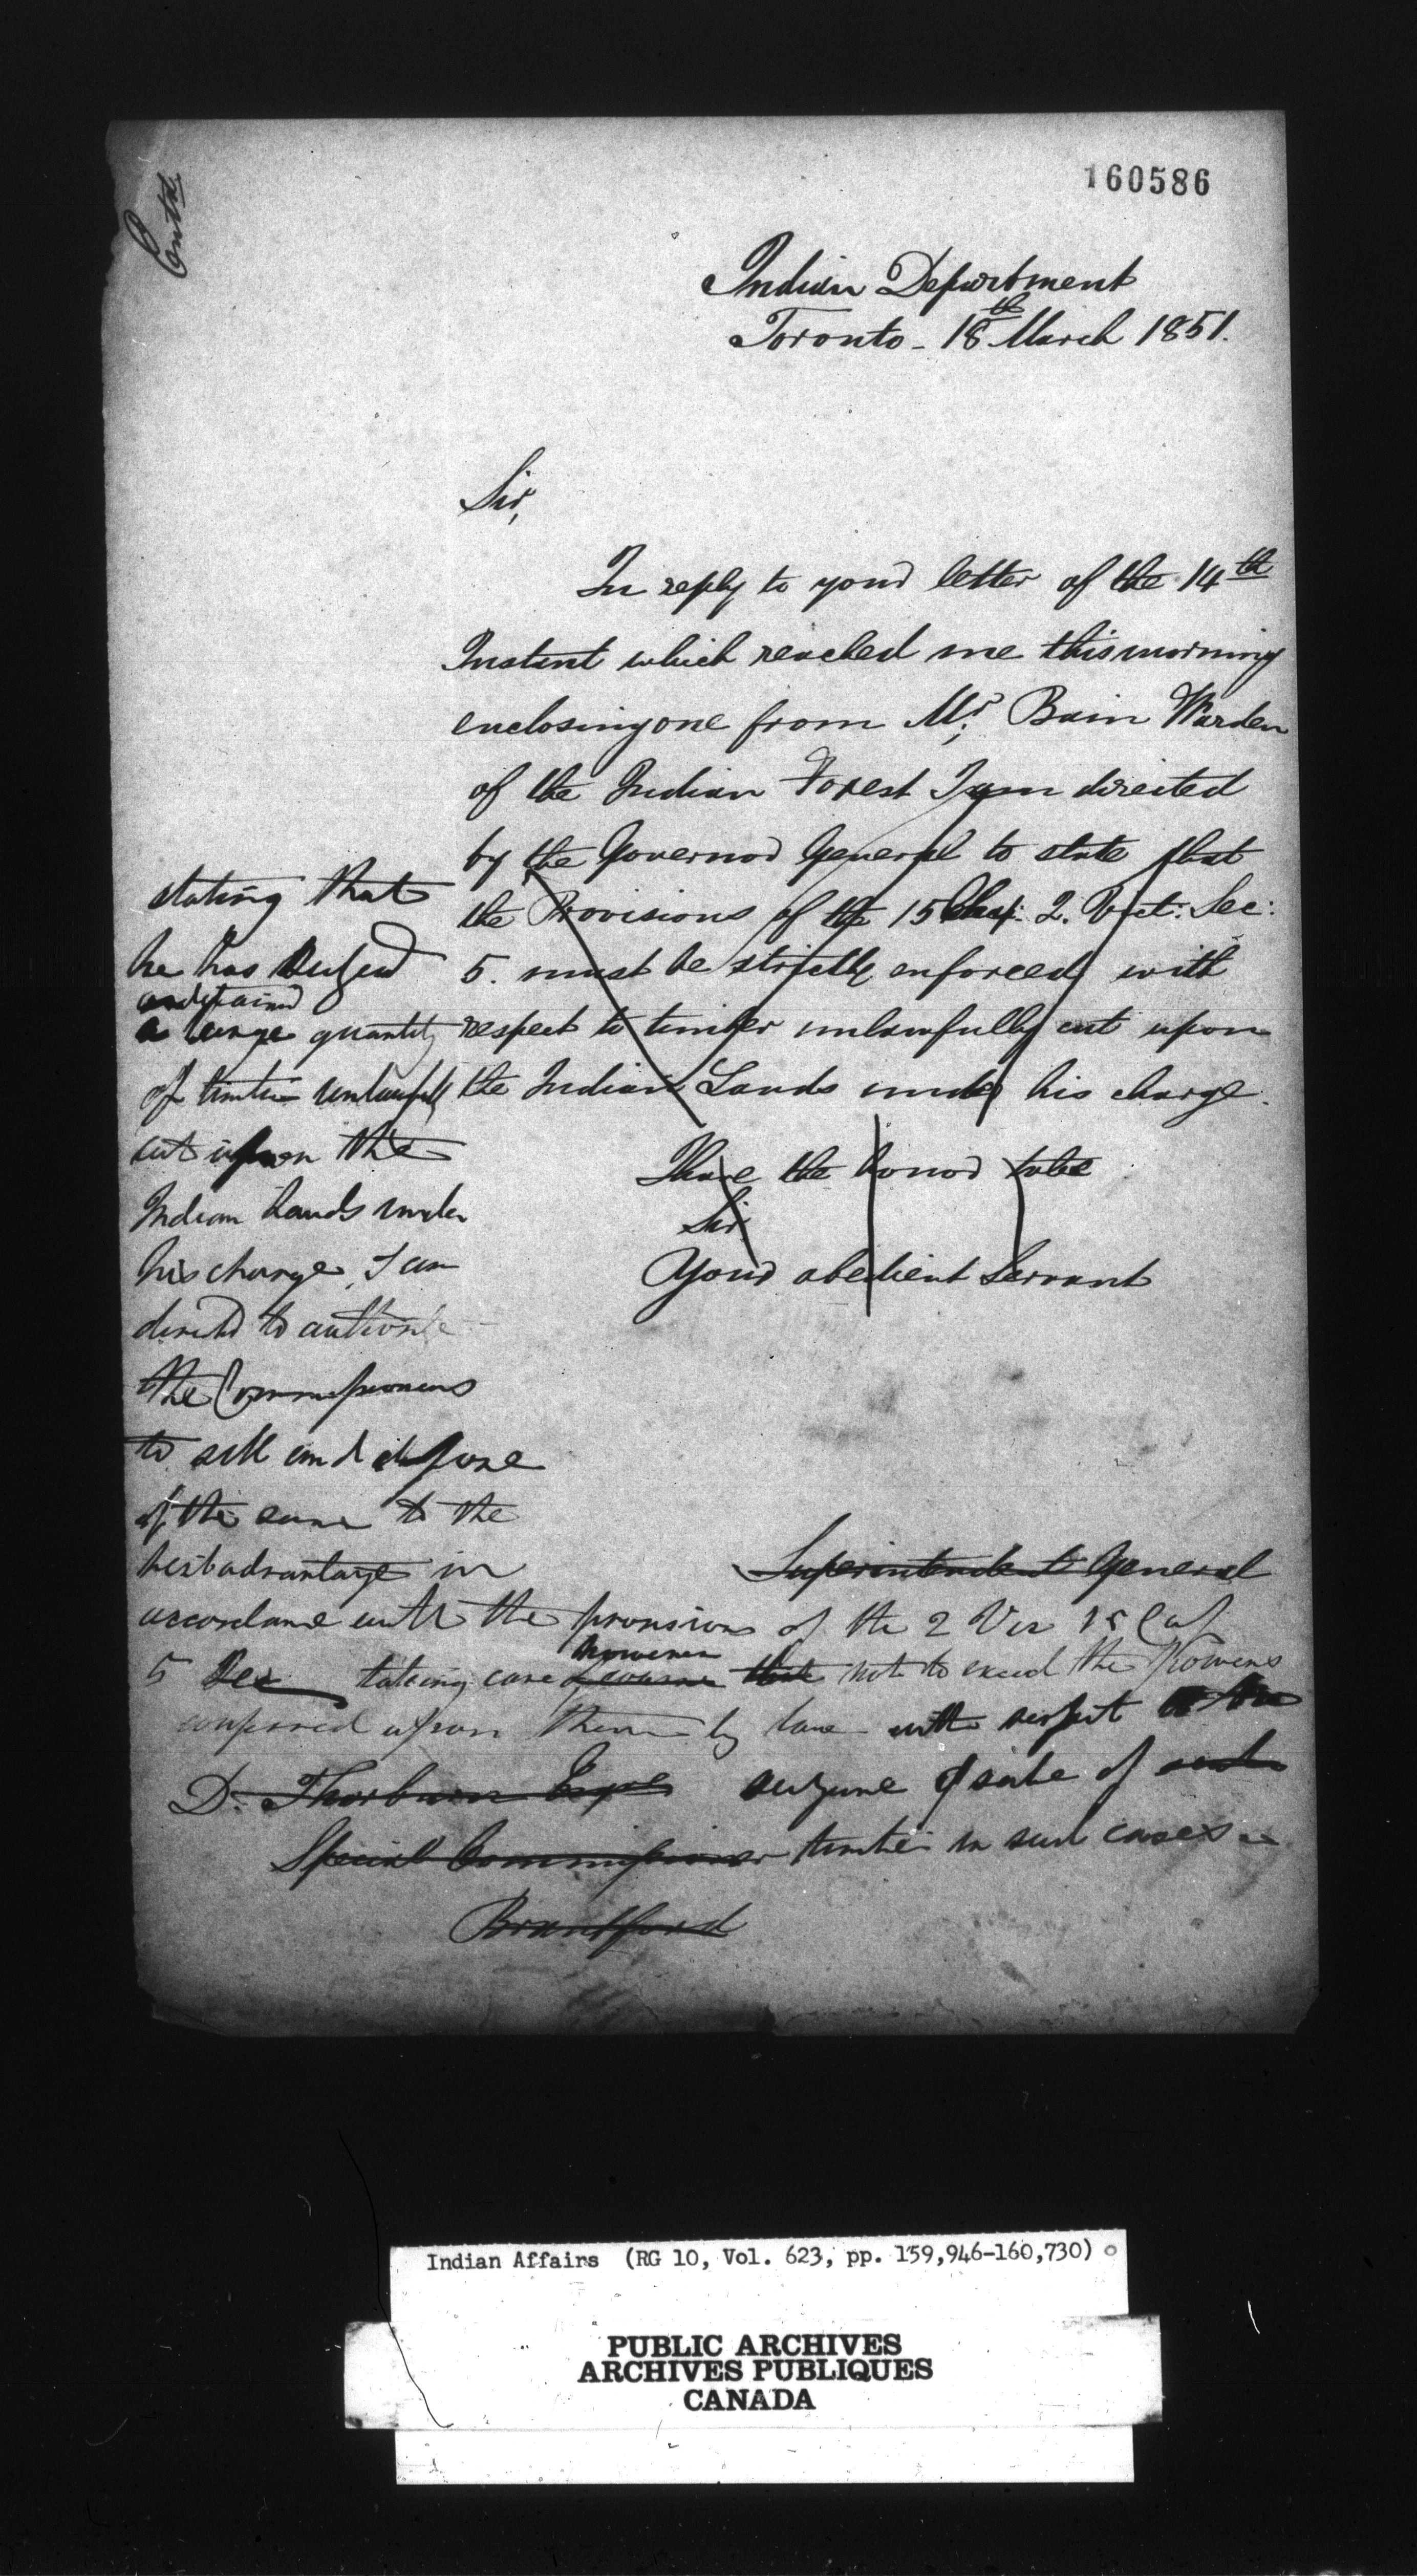 Contd
160586
Indian Department
Toronto - 18th March 1851.
Sir,
In reply to your letter of the 14th
Instant which reached me this morning
enclosing one from Mr. Bain Warden
of the Indian Forest I am directed
by the Governor General to state that
the Provisions of the 15 Chap: 2. Vict: Sec:
5. must be strictly enforced with
respect to timber unlawfully cut upon
the Indian Lands under his charge.
I have the honor to be
Sir
Your obedient Servant
Superintendent General
stating that
he has seized
and detained
a large quantity
of timber unlawfully
cut upon the
Indian Lands under
his charge, I am
directed to authorise
the Commissioners
to sell and dispose
of the same to the
best advantage in
accordance with the provisions of the 2 Vic 15 Cap
5 Sec taking care of course that not to exceed the powers
however
conferred upon them by law with respect to the
seizure & sale of such
timber in such cases
D. Thorburn Esqre
Special Commissioner
Brantford
Indian Affairs (RG 10, Vol. 623, pp. 159,946-160,730)
PUBLIC ARCHIVES
ARCHIVES PUBLIQUES
CANADA